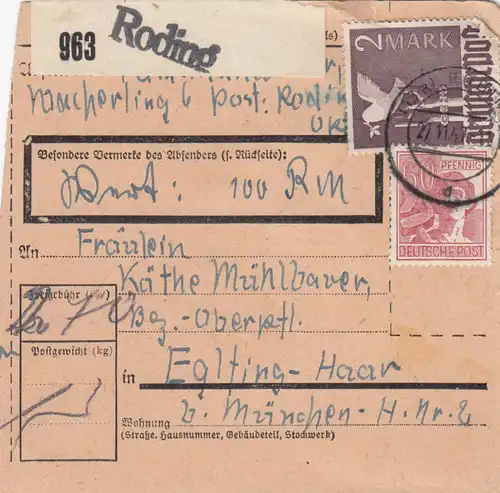 963
Roding
2 MARK
Post: Roding
Besondere Vermerke des Absenders (s. Rückseite):
Wert: 100 RM
60 PFENNIG
DEUTSCHE POST
An
Fräulein
Käthe Mühlbauer,
Bez.-Oberptl.
Postgewicht (kg)
in
Eglfing-Haar
b. München - H. Nr. 2
Wohnung
(Straße, Hausnummer, Gebäudeteil, Stockwerk)